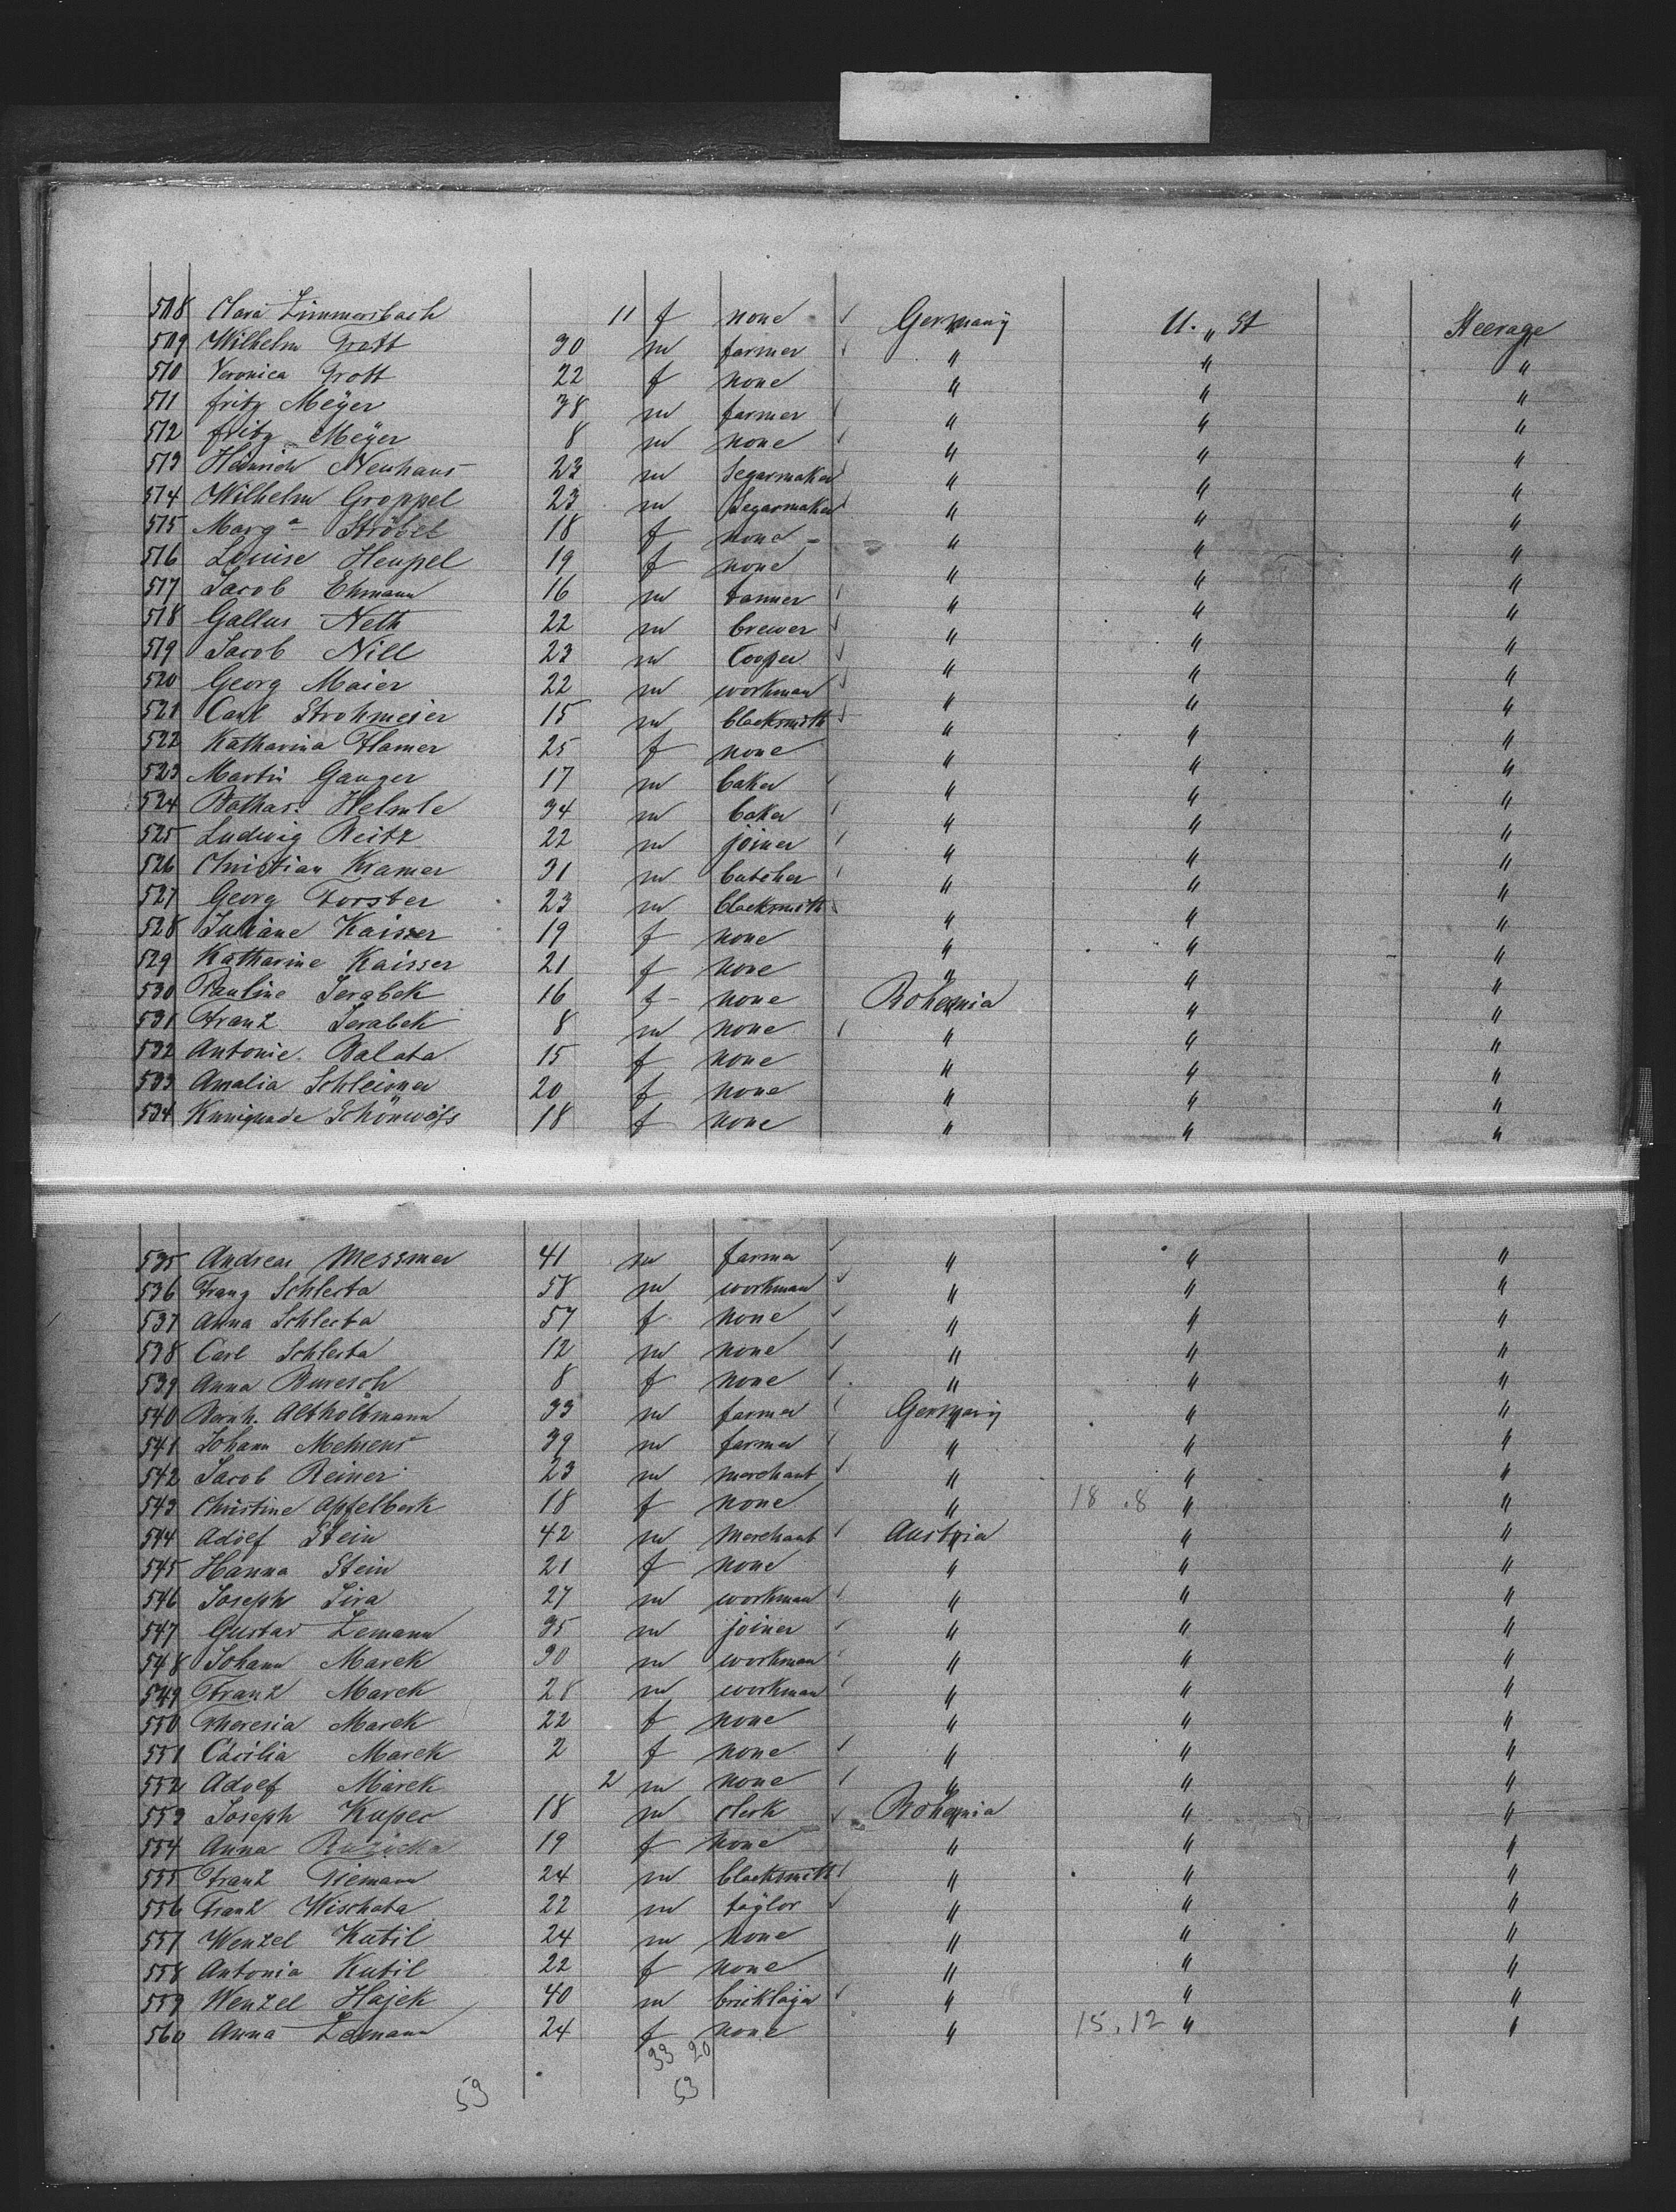 508 Clara Zimmersbach 11 f none Germany U. St Steerage
509 Wilhelm Trott 30 m farmer " " "
510 Veronica Trott 22 f none " " "
511 Fritz Meÿer 38 m farmer " " "
512 Fritz Meÿer 8 m none " " "
513 Heinrich Neuhaus 23 m Segarmaker " " "
514 Wilhelm Groppel 23 m Segarmaker " " "
515 Marga Ströbel 18 f none " " "
516 Louise Heupel 19 f none " " "
517 Jacob Ehmann 16 m tanner " " "
518 Gallus Neth 22 m brewer " " "
519 Jacob Nill 23 m Cooper " " "
520 Georg Maier 22 m workman " " "
521 Carl Strohmeier 15 m blacksmith " " "
522 Katharina Hamer 25 f none " " "
523 Martin Gauger 17 m baker " " "
524 Balthas. Helmle 34 m baker " " "
525 Ludwig Reitz 22 m joiner " " "
526 Christian Kramer 31 m butcher " " "
527 Georg Forster 23 m blacksmith " " "
528 Juliane Kaisser 19 f none " " "
529 Katharine Kaisser 21 f none " " "
530 Pauline Jerabek 16 f none Bohemia " "
531 Franz Jerabek 8 m none " " "
532 Antonie Balata 15 f none " " "
533 Amalia Schleisner 20 f none " " "
534 Kunigunde Schönweiss 18 f none " " "
535 Andreas Messmer 41 m farmer " " "
536 Franz Schlesta 58 m workman " " "
537 Anna Schlesta 57 f none " " "
538 Carl Schlesta 12 m none " " "
539 Anna Buresch 8 f none " " "
540 Bernh. Altholtmann 33 m farmer Germany " "
541 Johann Mehrens 39 m farmer " " "
542 Jacob Reiner 23 m merchant " " "
543 Christine Apfelberk 18 f none " 18 .8 " "
544 Adolf Stein 42 m merchant Austria " "
545 Hanna Stein 21 f none " " "
546 Joseph Sira 27 m workman " " "
547 Gustav Zemann 35 m joiner " " "
548 Johann Marek 30 m workman " " "
549 Franz Marek 28 m workman " " "
550 Theresia Marek 22 f none " " "
551 Cäcilia Marek 2 f none " " "
552 Adolf Marek 2 m none " " "
553 Joseph Kupec 18 m clerk Bohemia " "
554 Anna Ruzicka 19 f none " " "
555 Franz Ziemann 24 m blacksmith " " "
556 Franz Wischata 22 m taylor " " "
557 Wenzel Kutil 24 m none " " "
558 Antonia Kutil 22 f none " " "
559 Wenzel Hajek 40 m bricklayer " " "
560 Anna Zemann 24 f none " 15.12 " "
33 20
53 53